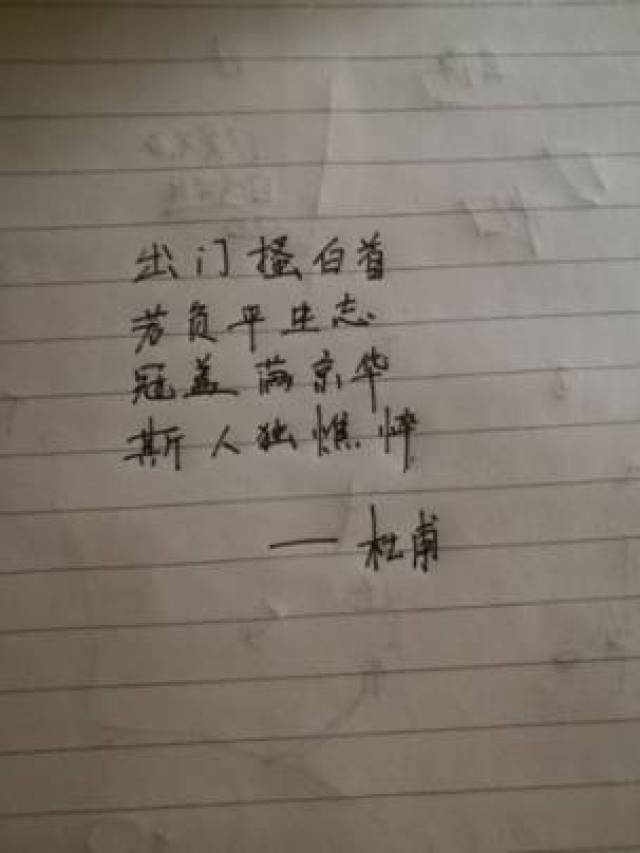 出门搔白首
若负平生志
冠盖满京华
斯人独憔悴
——杜甫